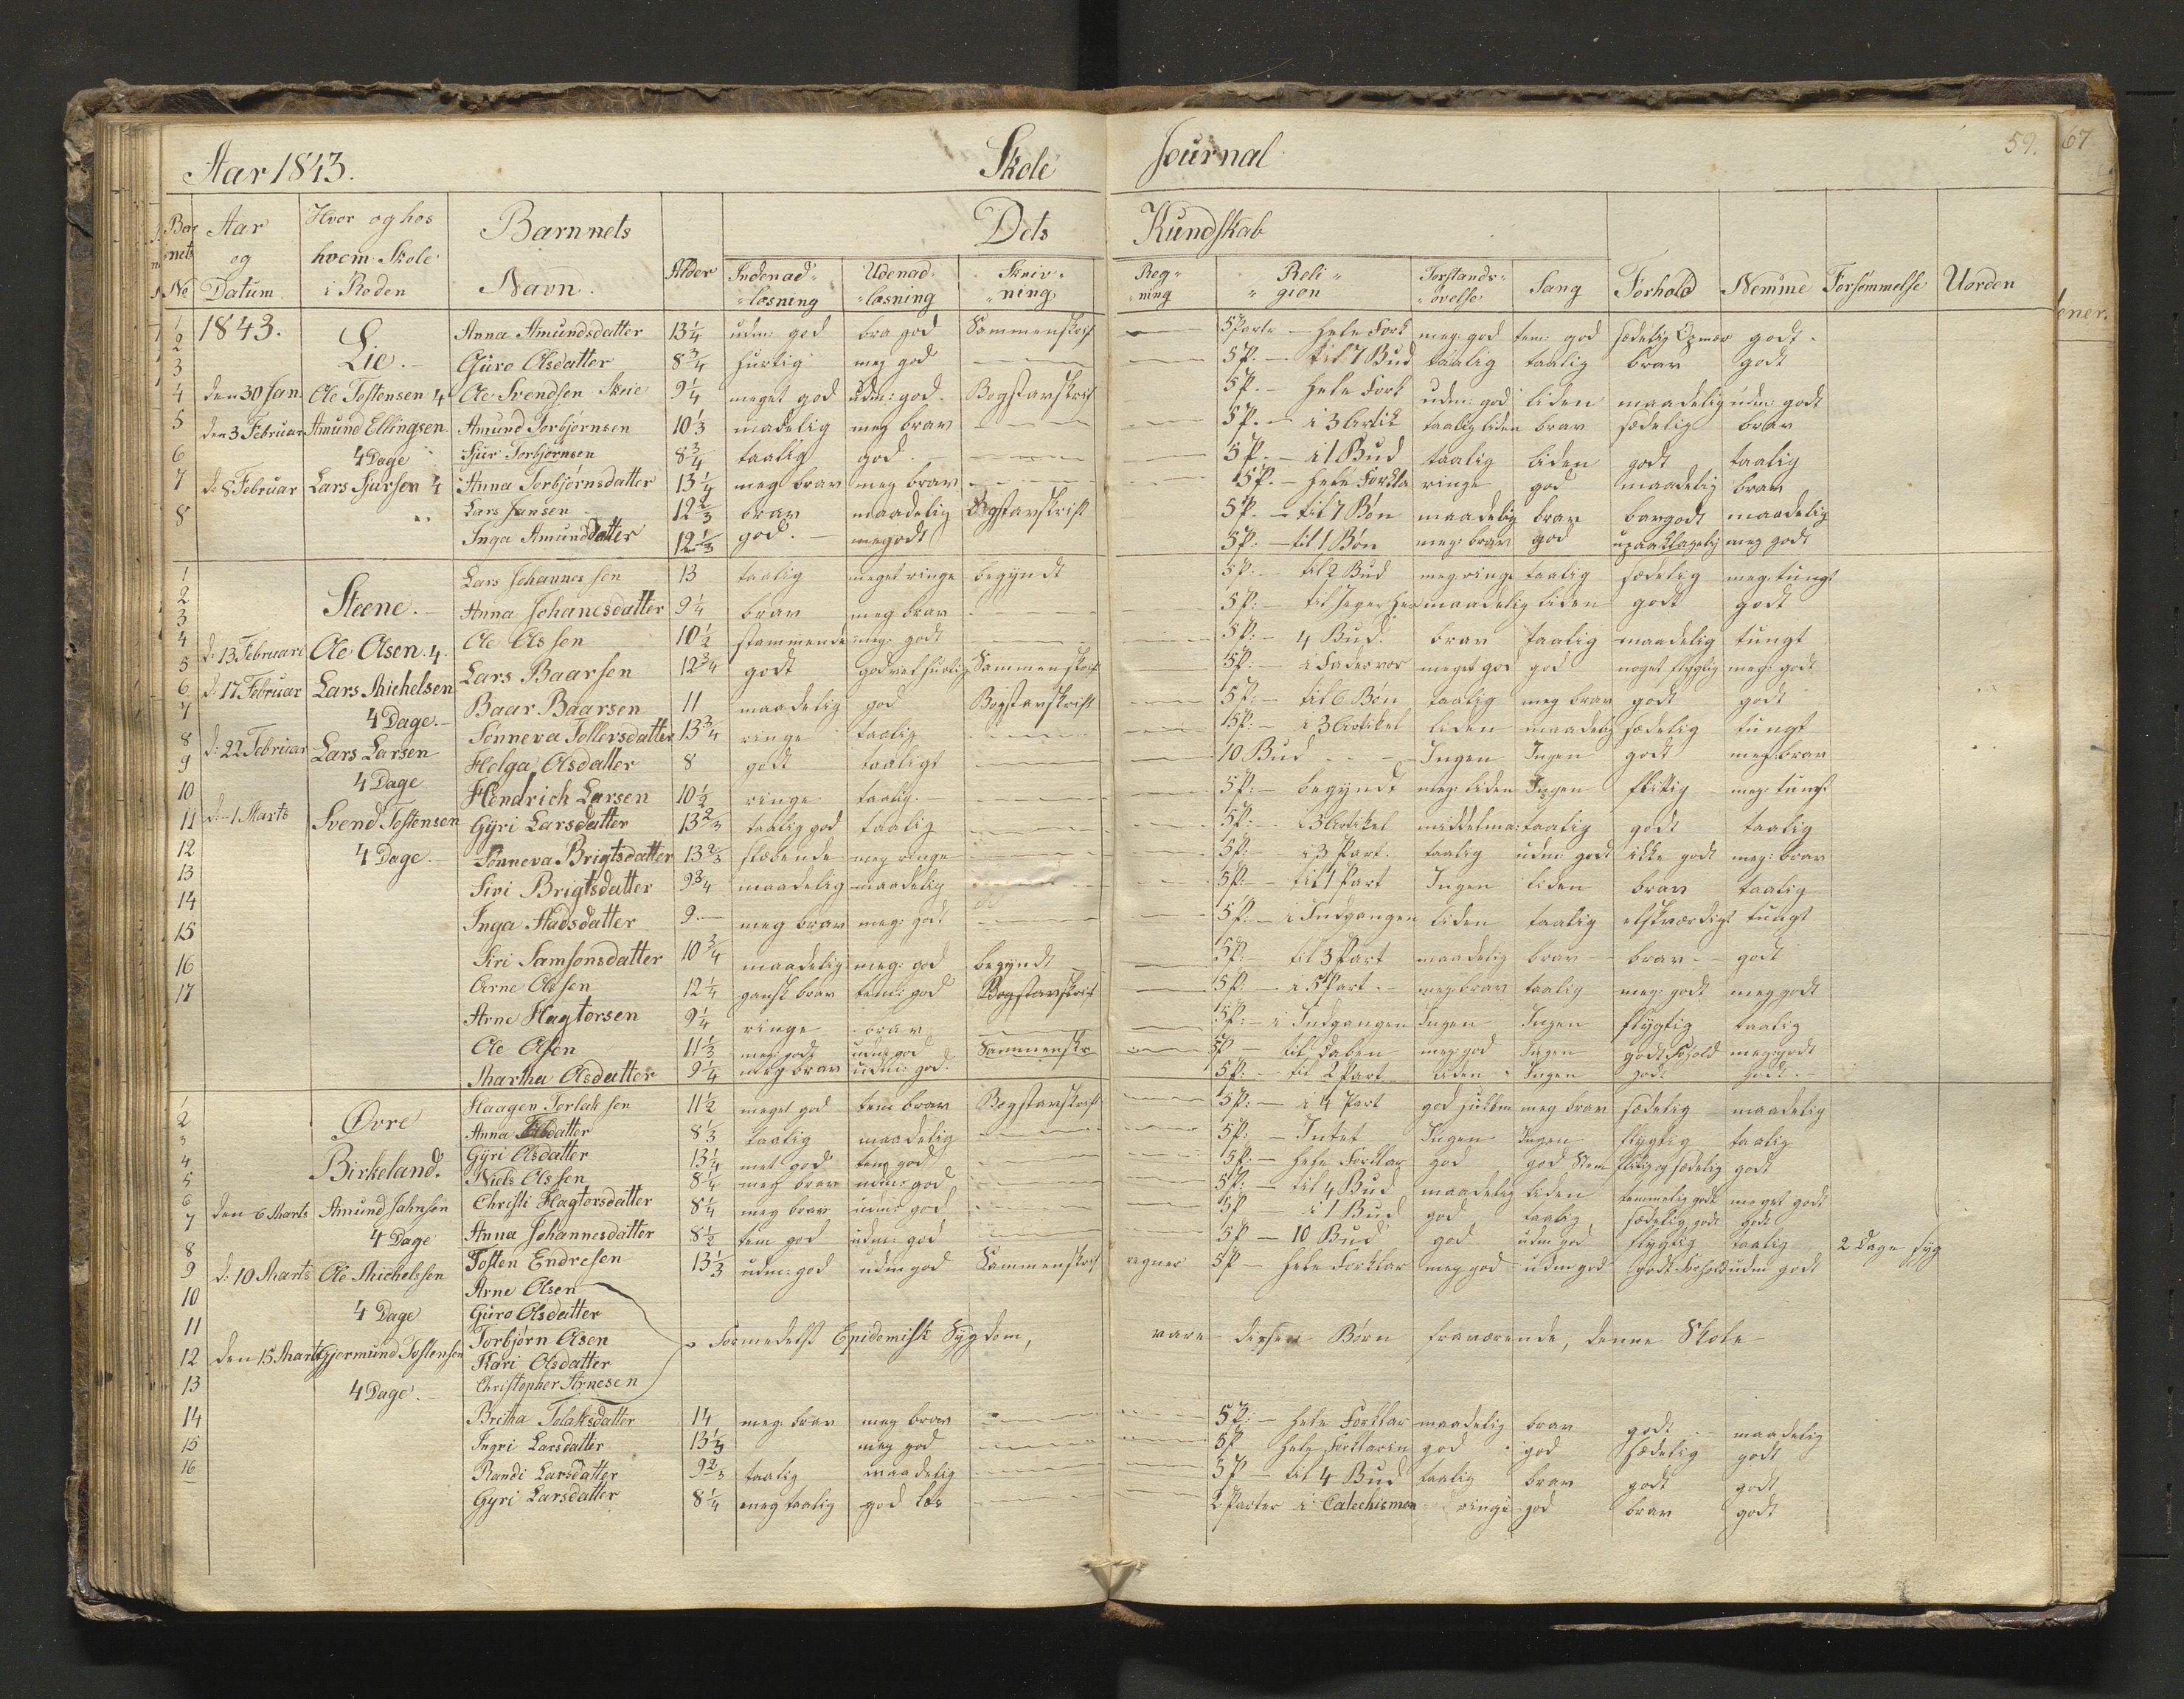 Aar 1843. Skole Journal 59. 67
Bar- nets No Aar og Datum Hvor og hos hvem Skole i Roden Barnnets Navn. Alder Dets Kundskab
Indenad- læsning Udenad- læsning Skriv- ning Reg- ning Reli- gion Forstands- øvelse Sang Forhold Nemme Forsømmelse Uorden
1843. Lie. Anna Amundsdatter 13 1/4 udm: god bra god Sammenskrif 5 Parte hele Fork meg: god tem: god sædelig godt
Guro Olsdatter 8 3/4 hurtig meg god 5 P. til 7 Bud taalig taalig brav godt
den 30 Jan Ole Tostensen 4 Ole Svendsen Skeie 9 1/4 meget god udm: god Bogstavskrif 5 P. hele Fork udm: god liden maadelig udm: godt
den 3 Februar Amund Ellingsen Amund Torbjørnsen 10 1/3 madelig meg brav 5 P. i 3 Artik taalig liden brav sædelig brav
4 Dage Sjur Torbjørnsen 8 3/4 taalig god 5 P. i 1 Bud taalig liden godt taalig
d: 8 Februar Lars Sjursen 4 Anna Torbjørnsdatter 13 1/4 meg brav meg brav 5 P. hele Forkla ringe god maadelig brav
Lars Jansen 12 2/3 brav maadelig Bogstavskrift 5 P. til 7 Bøn maadelig brav maadelig
Inga Amunddatter 12 1/3 god. megodt 5 P: til 1 Bøn meg: brav god upaaklagelig meg godt
Lars Johannessen 13 taalig meget ringe begyndt 5 P: til 2 Bud meg ringe taalig sædelig meg: tungt
Steene. Anna Johanesdatter 9 1/4 brav meg brav 5 P: maadelig liden godt godt
Ole Olssen 10 1/2 stammende meg: godt 5 P: 4 Bud. brav taalig maadelig tungt
d: 13 Februari Ole Olsen. 4. Lars Baarsen 12 3/4 godt Sammenskrif 5 P: i Fader vor meget god god noget flygtig meg: godt
d: 17 Februar Lars Michelsen Baar Baarsen 11 maadelig god Bogstavskrift 5 P: til 6 Bøn taalig meg brav godt godt
4 Dage. Sønneva Tollevsdatter 13 3/4 ringe taalig 5 P: i 3 Artikel liden maadelig sædelig tungt
d: 22 Februar Lars Larsen Helga Olsdatter 8 godt taaligt 10 Bud Ingen Ingen godt meg: brav
4 Dage Hendrich Larsen 10 1/2 ringe taalig. 5 P: begyndt meg: liden Ingen flittig meg: tungt
d: 1 Marts Svend Tostensen Gÿri Larsdatter 13 2/3 taalig god taalig 5 P: i 3 Artikel middelma: taalig godt taalig
4 Dage. Sønneva Brigtsdatter 13 2/3 slæbende meg ringe 5 P: i 3 Part. taalig udm: godt ikke godt meg: brav
Siri Brigtsdatter 9 3/4 maadelig maadelig 5 P: til 1 Part Ingen liden brav taalig
Inga Madsdatter 9 meg brav meg: godt 5 P: i Indgangen liden taalig elskværdigt tungt
Siri Samsonsdatter 10 3/4 maadelig meg: god begyndt 5 P: til 3 Part maadelig brav brav godt
Arne Olssen 12 1/4 gansk brav tem: god Bogstavskrif 5 P: i 5 Part. meg: brav taalig meg: godt meg godt
Arne Hagtorsen 9 1/4 ringe brav 5 P: i Indgangen Ingen Ingen flygtig taalig
Ole Olsen 11 1/3 meg: godt udm: god Sammenskr 5 P til Daben meg: god Ingen godt Fohold meg: godt
Martha Olsdatter 9 1/4 meg brav udm: god. 5 P: til 2 Part liden Ingen godt godt
Haagen Torlaksen 11 1/2 meget god tem brav Bogstavskrif 5 P: i 4 Part god meg brav sædelig maadelig
Øvre Anna datter 8 1/3 taalig maadelig 5 P: Intet Ingen Ingen flygtig taalig
Gÿri Olsdatter 13 1/4 met god tem god 5 P: hele Forklar god god Stem flittig og sædelig godt
Birkeland. Niels Olssen 8 1/4 meg brav udm: god 5 P: til 4 Bud maadelig liden temmelig godt meget godt
den 6 Marts Amund Jahnsen Christi Hagtorsdatter 8 1/4 meg brav udm: god 5 P i 1 Bud god taalig sædelig godt godt
4 Dage Anna Johannesdatter 8 1/2 tem god udm: god 5 P 10 Bud god udm god flygtig taalig 2 Dage syg
d: 10 Marts Ole Michelssen Tosten Endresen 13 1/3 udm: god udm god Sammenskrif regner 5 P hele Forklar meg god udm god godt Forhold udm godt
Arne Olsen
4 Dage Guro Olsdatter
Torbjørn Olsen Formedelst Epidemisk Sygdom, vare dissen Børn fraværende, denne Skole
den 15 Marts Gjermund Tostensen Kari Olsdatter
4 Dage. Christopher Arnesen
Britha Tolaksdatter 14 meg: brav meg brav 5 P: hele Forklar maadelig brav godt maadelig
Ingri Larsdatter 13 1/3 meg god 5 P hele Forklaren god god sædelig godt
Randi Larsdatter 9 2/3 taalig maadelig 5 P til 4 Bud taalig brav godt godt
Gyri Larsdatter 8 1/4 meg taalig god læs 2 Parter i Catechismen ringe god brav godt